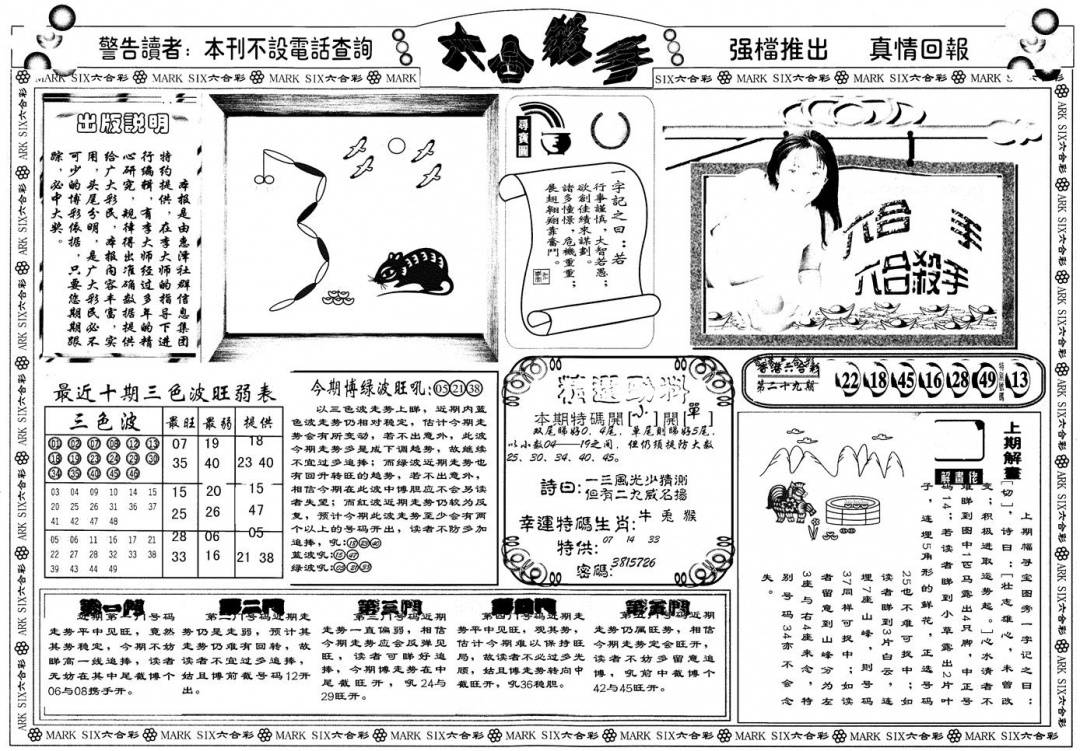 警告讀者：本刊不設電話查詢
六合殺手
强檔推出　真情回報
MARK SIX六合彩
出版説明
本报是由惠泽社群信息集团
特约提供，在李大师的指导下进
行编辑，有李大师经过多年的精
心研究，规律得出准确数据提供
给广大彩民，本报内容丰富，实
用，头尾分明，是广大彩民必不
可少的博彩依据，只要您期期跟
踪，必中大奖。
一字記之曰：若
行事謹慎，大智若愚；
欲創佳績來謀劃。
諸多憧憬，危機重重；
展翅翱翔靠奮鬥。
六合 手
六合殺手
香港六合彩
第二十九期
22 18 45 16 28 49
特别號碼
13
最近十期三色波旺弱表
三色波 最旺 最弱 提供
01 02 07 08 12 13
18 19 23 24 29 30
34 35 40 45 46
07 19 18
35 40 23 40
03 04 09 10 14 15
20 25 26 31 36 37
41 42 47 48
15 20 15
25 26 47
05 06 11 16 17 21
22 27 28 32 33 38
39 43 44 49
28 06 05
33 16 21 38
今期博绿波旺吼：05 21 38
以三色波走势上睇，近期内蓝
色波走势仍相对稳定，估计今期走
势会有所变动，若不出意外，此波
今期走势多是成下调趋势，故继续
不宜过多追捧；而绿波近期走势也
有回升转旺的趋势，若不出意外，
相信今期在此波中博胆应不会另读
者失望；而红波近期走势仍较为反
复，预计今期此波走势至少会有两
个以上的号码开出，读者不防多加
追捧，吼：18 23 40
蓝波吼：15 47
绿波吼：05 21 38
精選動料
本期特碼開[小]開[單]
双尾睇好0、4尾，单尾则睇好5尾，
以小数04——19之间，但仍须提防大数
25、30、34、40、45。
詩曰：一三風光少猜測
但有二九威名揚
幸運特碼生肖：牛 兎 猴
特供：07 14 33
密碼：3815726
上期解畫
解畫佬
上期幅寻宝图旁一字记之曰：
[切]，诗曰：[壮志雄心，未曾改
变；积极进取运势起。]心水清者不
难睇到图中1匹马露出4只脚，中正号
码14；若读者睇到小草露出2片叶
子，连埋5角形的鲜花，正选号码
25也不难可找中；如
读者睇到3片白云，连
埋7座山峰，则号码
37同样可捉中；如读
者留意到山峰分为左
3座与右4座来念，特
别号码34亦不会念
失。
第一門
近期第一门号码
走势平中见旺，竟然
其势稳定，今期不妨
睇高一线追捧，读者
无妨在其中尾截博个
06与08携手开。
第二門
第二门号码近期走
势仍是走弱，预计其
走势仍难有回转，故
读者不宜过多追捧，
姑且博前截号码12开
出。
第三門
第三门号码近期
走势一直偏弱，相信
今期走势应会反弹见
旺，读者可睇好追
捧，今期博走势在中
尾截旺开，吼24与
29旺开。
第四門
第四门号码近期
走势平中见旺，观其势，
估计今期难以保持旺
局，故读者不必过多光
顾，姑且博走势转向中
截旺开，吼36稳胆。
第五門
第五门号码近期
走势仍属旺势，相信
今期走势定会旺开，
读者不妨多留意追
捧，吼前中截博个
42与45旺开。
MARK SIX六合彩